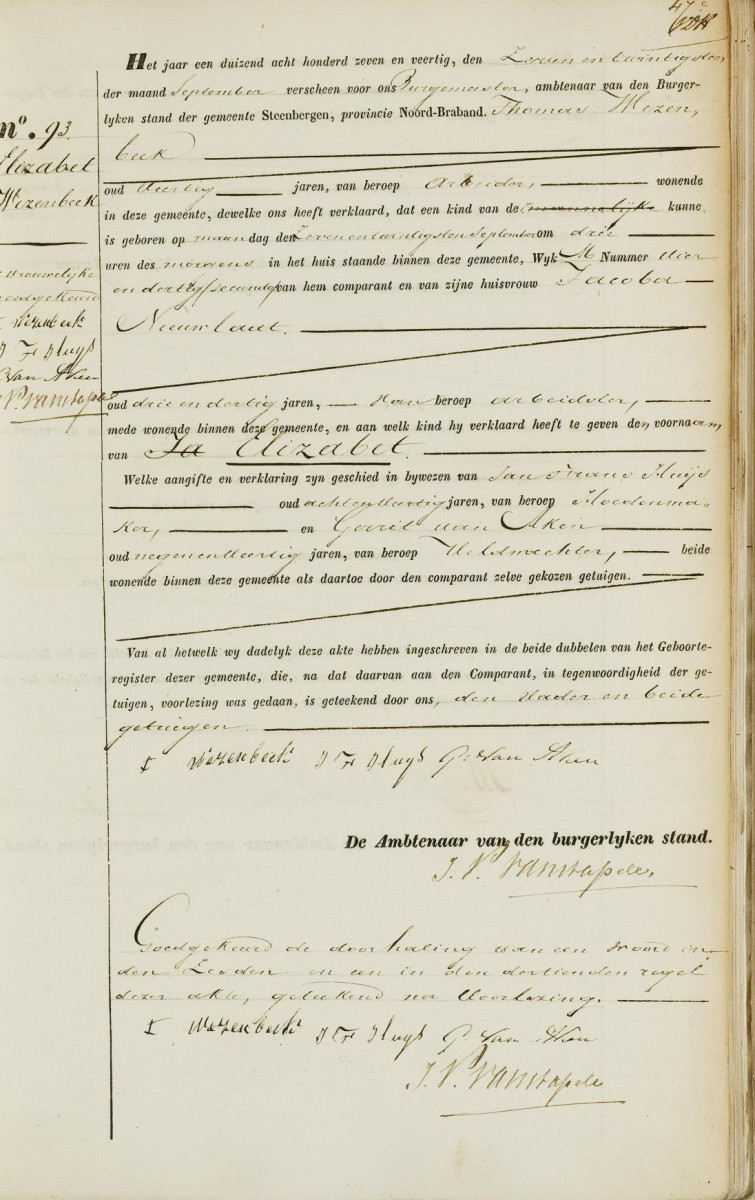 47e
No. 93.
Elizabet
Wezenbeek
vrouwelyke
goedgekeurd
T Wezenbeek
J Fr Huys
G. van Aken
J. V. Vanstapele
Het jaar een duizend acht honderd zeven en veertig, den Zeven en twintigsten
der maand September verscheen voor ons Burgemeester, ambtenaar van den Burger-
lyken stand der gemeente Steenbergen, provincie Noord-Braband. Thomas Wezen,
beek
oud Veertig jaren, van beroep Arbeider, wonende
in deze gemeente, dewelke ons heeft verklaard, dat een kind van de mannelijke kunne
is geboren op maandag den Zevenentwintigsten September om drie
uren des morgens in het huis staande binnen deze gemeente, Wyk M Nummer Vier
en dertig secunda van hem comparant en van zijne huisvrouw Jacoba
Nieuwlaat.
oud drie en dertig jaren, Van beroep arbeidster,
mede wonende binnen deze gemeente, en aan welk kind hy verklaard heeft te geven den voornaam
van Ja Elizabet.
Welke aangifte en verklaring zyn geschied in bywezen van Jan Frans Huijs
oud achtenveertig jaren, van beroep Hoedenma-
ker, en Gerrit van Aken
oud negenenveertig jaren, van beroep Veldwachter, beide
wonende binnen deze gemeente als daartoe door den comparant zelve gekozen getuigen.
Van al hetwelk wy dadelyk deze akte hebben ingeschreven in de beide dubbelen van het Geboorte-
register dezer gemeente, die, na dat daarvan aan den Comparant, in tegenwoordigheid der ge-
tuigen, voorlezing was gedaan, is geteekend door ons, den Vader en beide
getuigen.
T Wezenbeek J Fr Huys G. van Aken
De Ambtenaar van den burgerlyken stand.
J. V. Vanstapele,
Goedgekeurd de doorhaling van een woord in
den Zesden en een in den dertienden regel
dezer akte, geteekend na Voorlezing.
T Wezenbeek J Fr Huys G. van Aken
J. V. Vanstapele